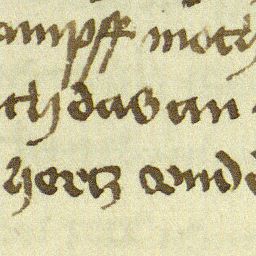 ampff moch
ch das an
hertz vnd